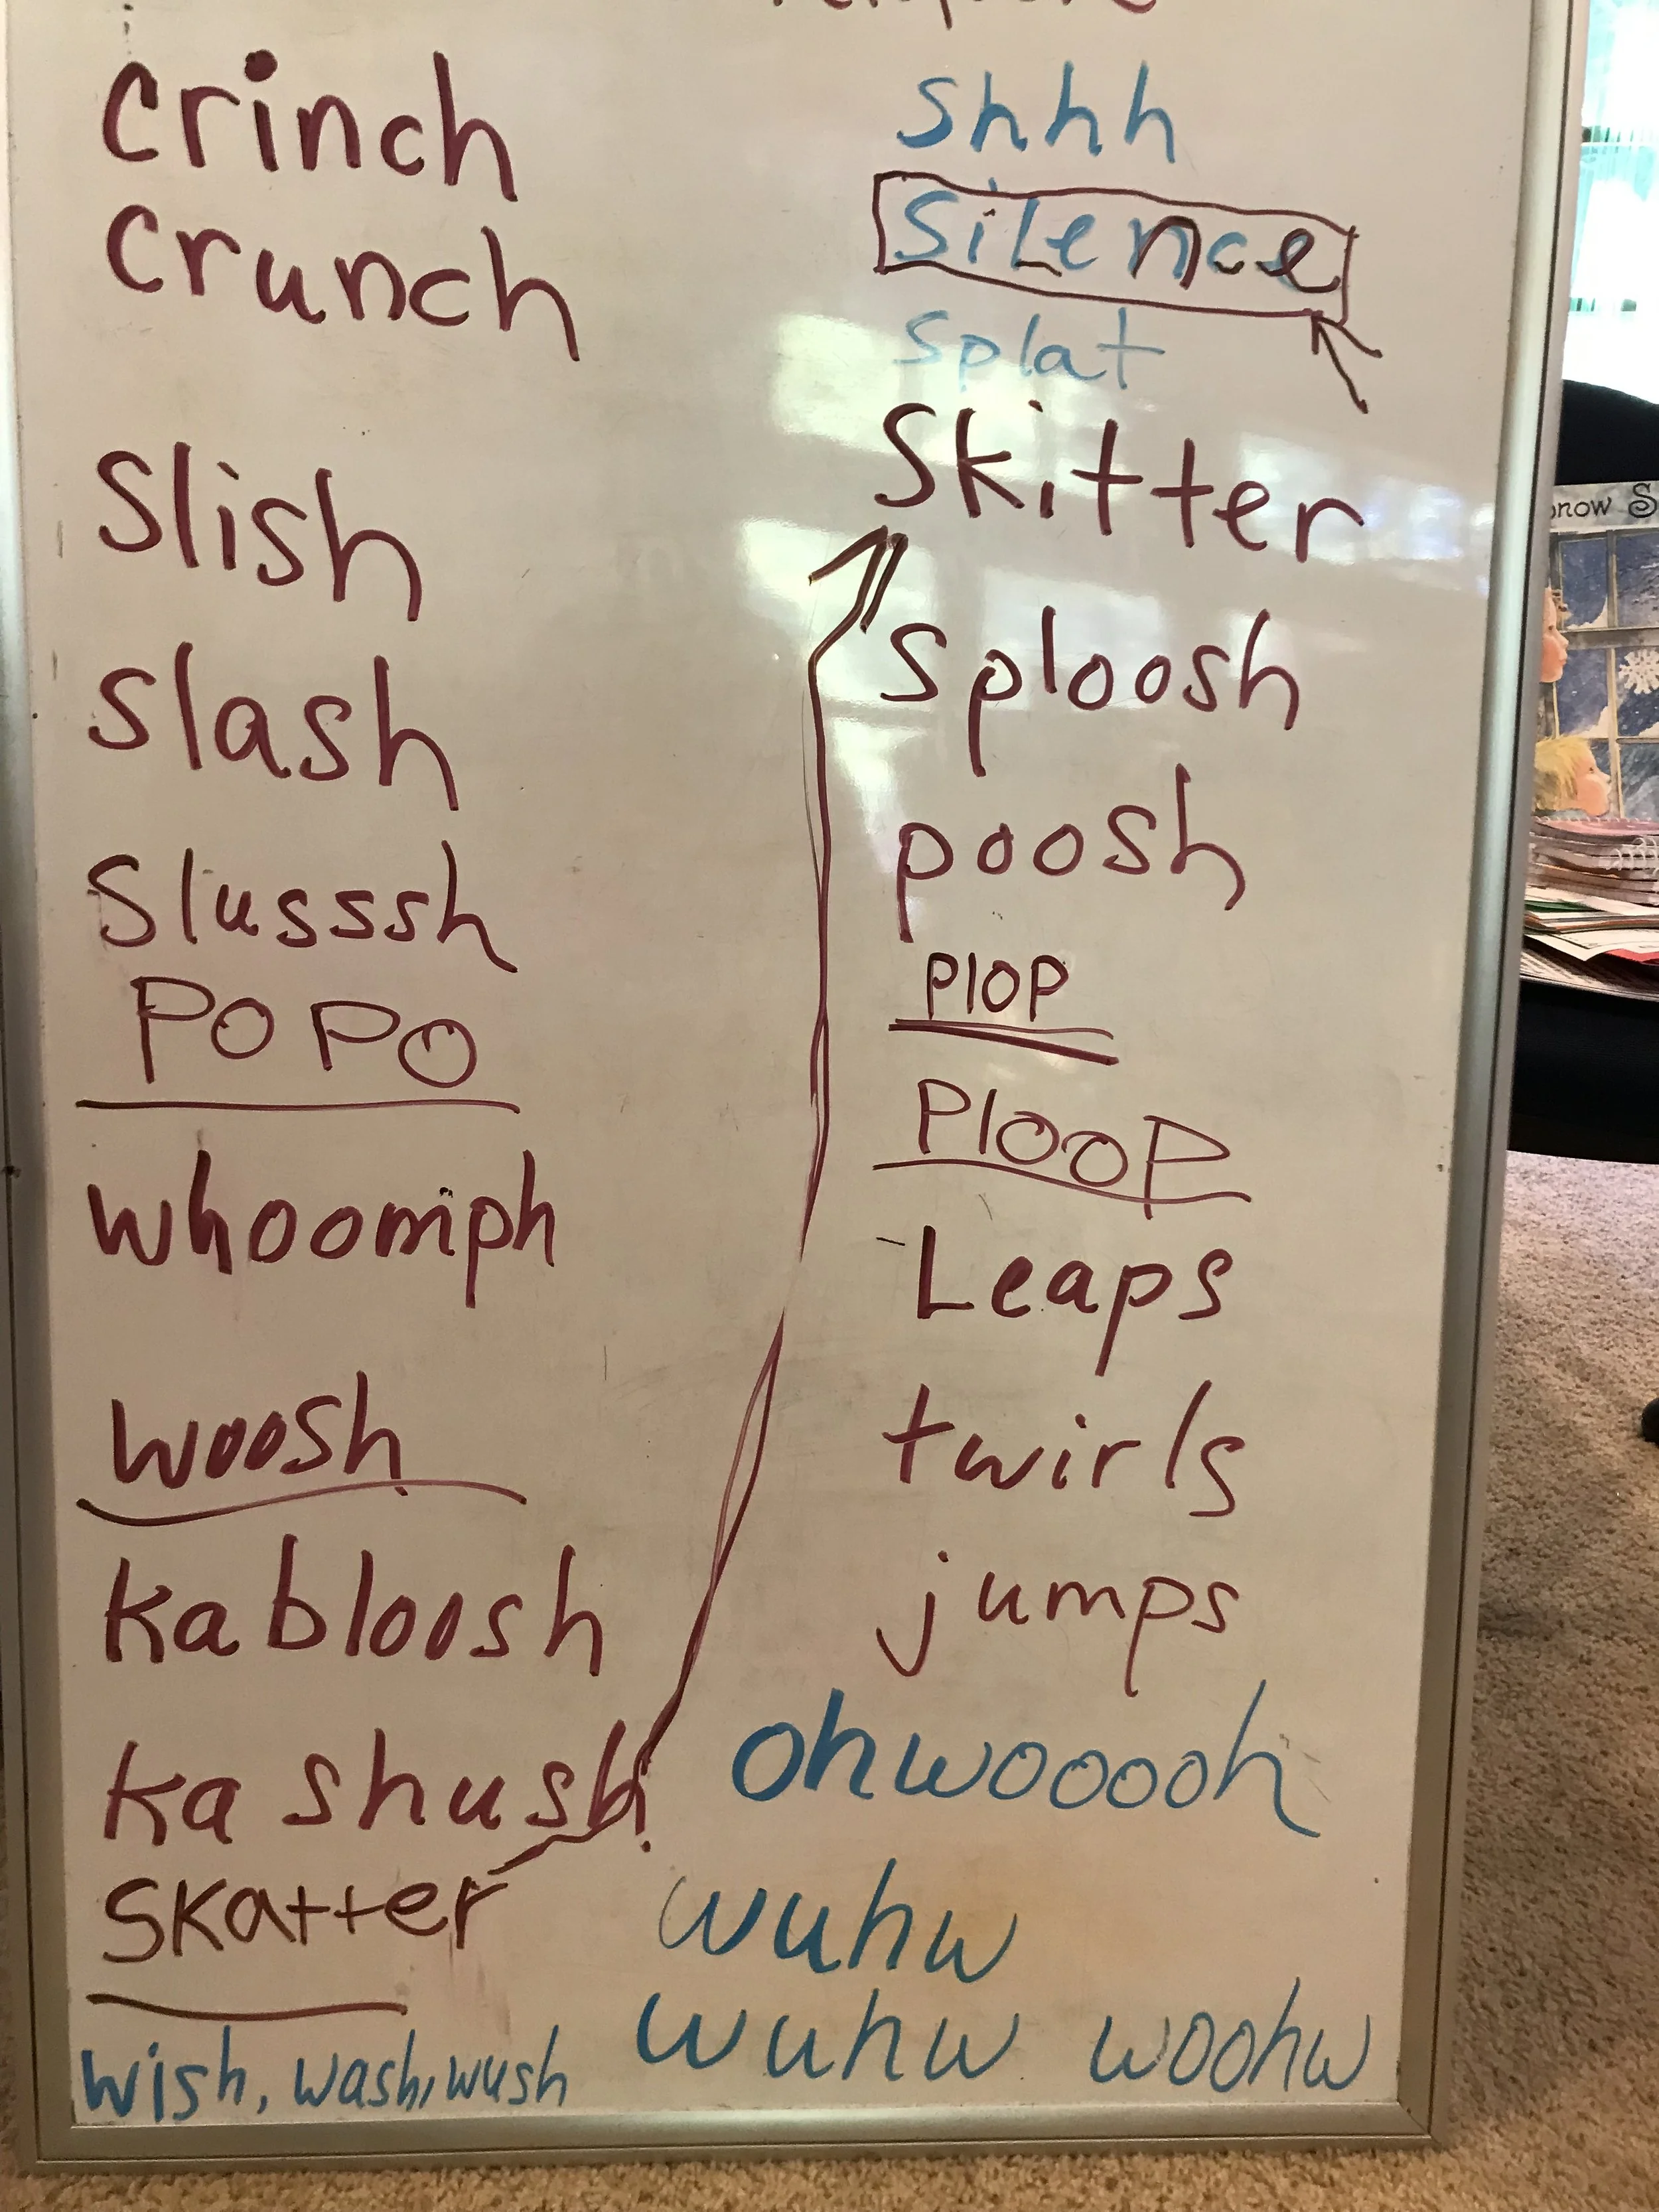 crinch
crunch
Slish
slash
Slusssh
POPO
whoomph
woosh
kabloosh
ka shush
SKatter
wish, wash, wush
shhh
SiLence
splat
Skitter
sploosh
poosh
PlOP
PlOOP
Leaps
twirls
jumps
ohwooooh
wuhw
wuhw woohw
now S